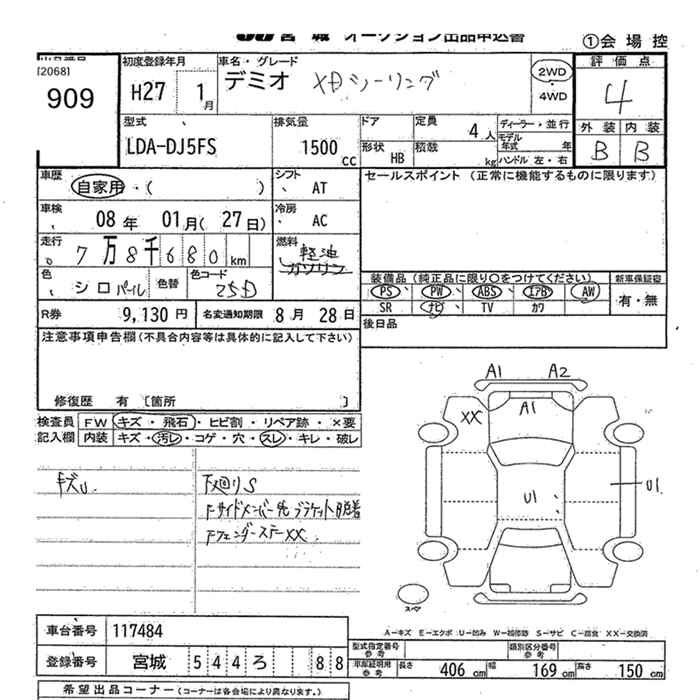 宮城 オークション出品申込書
①会場控
出品番号 初度登録年月 車名・グレード 評価点
[2068] H27 1月 デミオ XDツーリング 2WD
909 ・4WD 4
型式 排気量 ドア 定員 4人 ディーラー・並行 外装 内装
モデル年式 年
LDA-DJ5FS 1500cc 形状 HB 積載 kg ハンドル 左・右 B B
車歴 自家用・( ) シフト AT セールスポイント (正常に機能するものに限ります)
車検 08年 01月(27日) 冷房 AC
走行 7万8千680km 燃料 軽油
ガソリン
色 シロパール 色替 色コード 25D 装備品 (純正品に限り○をつけてください) 新車保証書
PS・PW・ABS・エアB・AW 有・無
R券 9,130円 名変通知期限 8月28日 SR ナビ TV カワ
後日品
注意事項申告欄(不具合内容等は具体的に記入して下さい)
修復歴 有 [箇所 ]
検査員 FW キズ・飛石・ヒビ割・リペア跡・×要
記入欄 内装 キズ・汚レ・コゲ・穴・スレ・キレ・破レ
A1 A2
XX A1
キズU 下廻りS
Fサイドメンバー先ブラケット
U1 U1
FフェンダーステーXX
スペア
A=キズ E=エクボ U=凹み W=補修跡 S=サビ C=腐食 XX=交換済
車台番号 117484
型式指定番号 参考 類別区分番号 参考
登録番号 宮城 544 ろ 88
車庫証明用 参考 長さ 406cm 幅 169cm 高さ 150cm
希望出品コーナー (コーナーは各会場により異なります。)